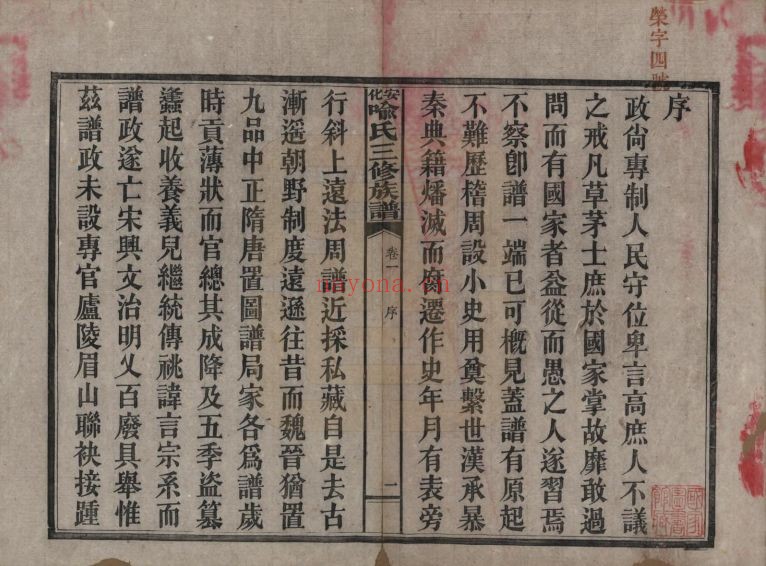 榮字四號
序
政尙專制人民守位卑言高庶人不議
之戒凡草茅士庶於國家掌故靡敢過
問而有國家者益從而愚之人遂習焉
不察卽譜一端已可槪見蓋譜有原起
不難歷稽周設小史用奠繫世漢承暴
秦典籍燔滅而腐遷作史年月有表旁
安化喩氏三修族譜
卷一
序
一
行斜上遠法周譜近採私藏自是去古
漸遥朝野制度遠遜往昔而魏晉猶置
九品中正隋唐置圖譜局家各爲譜歲
時貢薄狀而官總其成降及五季盜篡
蠭起收養義兒繼統傳祧諱言宗系而
譜政遂亡宋興文治明乂百廢具舉惟
茲譜政未設專官廬陵眉山聯袂接踵